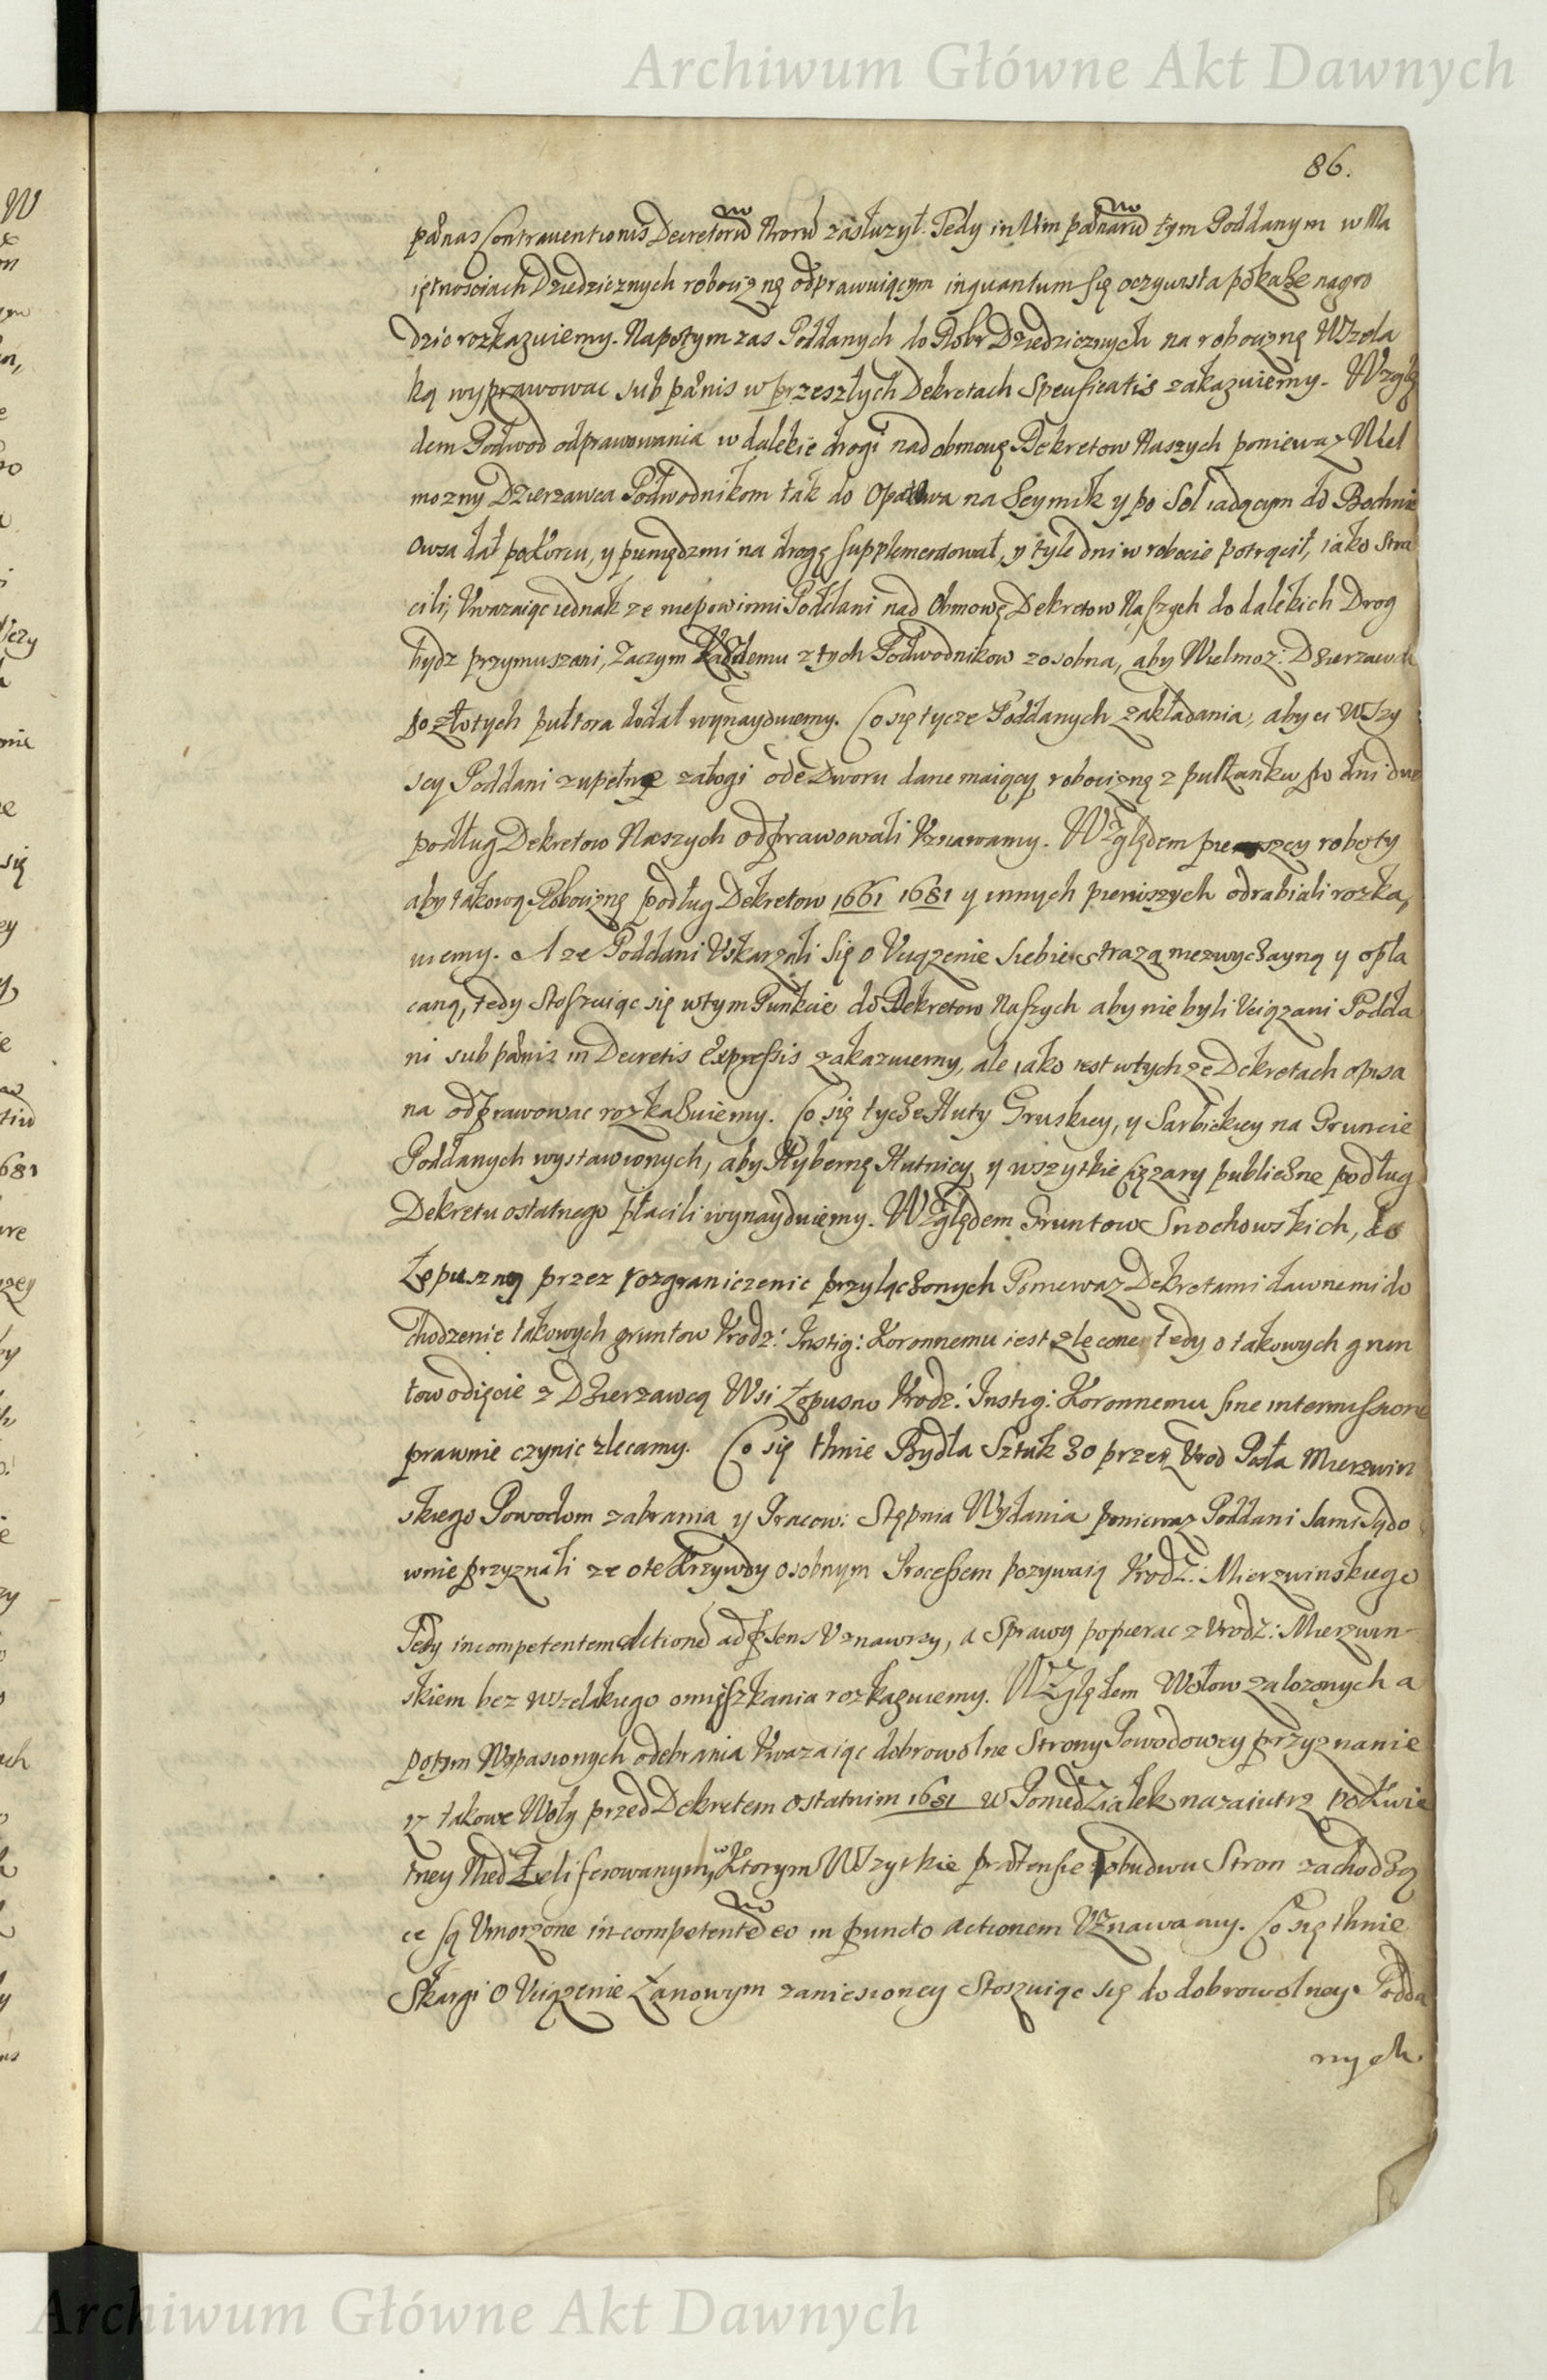 Archiwum Główne Akt Dawnych
86.
pænas Contraventionis Decretorū Nrorū zasłuzył. Tedy in Vim pænarū tym Poddanym w Ma
iętnosciach Dziedzicznych robociznę odprawuiącym inquantum się oczywista pokaze nagro
dzic rozkazuiemy. Napotym zas Poddanych do Dobr Dziedzicznych na robociznę Wszela
ką wyprawowac sub pænis w przeszłych Dekretach Specificatis zakazuiemy. Wzglę
dem Podwod odprawowania w dalekie drogi nad obmowę Dekretow Naszych poniewaz Wiel
mozny Dzierzawca Podwodnikom tak do Opatowa na Seymik y po Sol iadącym do Bochnie
Owsa dał po korcu, y pieniędzmi na drogę supplementował, y tyle dni w robocie potrącił, iako stra
cili; Uwazaiąc iednak ze niepowinni Poddani nad Obmowę Dekretow Naszych do dalekich Drog
bydz przymuszani, Zaczym kazdemu z tych Podwodnikow zosobna, aby Wielmoz: Dzierzawca
po złotych pułtora dodał wynayduiemy. Co się tycze Poddanych zakładania, aby ci Wszy
scy Poddani zupełne załogi ode Dworu dane maiący, robociznę z pułłanku po dni dwa
podług Dekretow Naszych odprawowali Uznawamy. Względem pierwszey roboty
aby takową Robociznę podług Dekretow 1661 1681 y innych pierwszych odrabiali rozka,
uiemy. A ze Poddani Uskarzali się o Uciązenie siebie strazą niezwyczayną y opła
caną, tedy Stosuiąc się w tym Punkcie do Dekretow Naszych aby nie byli Uciązani Podda
ni sub pænis in Decretis Expressis zakazuiemy, ale iako iest w tych ze Dekretach opisa
na odprawowac rozkazuiemy. Co się tycze Huty Gruskiey, y Sarbickiey na Gruncie
Poddanych wystawionych, aby Hybernę Hutnicy y wszytkie Cięzary publiczne podług
Dekretu ostatnego płacili wynayduiemy. Względem Gruntow Snochowskich, do
Łopuszny przez rozgraniczenie przyłączonych Poniewaz Dekretami dawnemi do
chodzenie takowych gruntow Urodz: Instig: Koronnemu iest zlecone, tedy o takowych grun
tow odięcie z Dzierzawcą Wsi Łopusno Urodz: Instig: Koronnemu sine intermissione
prawnie czynic zlecamy. Co się tknie Bydła Sztuk 30 przez Urod Pasła Mierzwin
skiego Powodom zabrania y Pracow: Stępnia Wydania poniewaz Poddani sami sądo
wnie przyznali ze o te Krzywdy osobnym Processem pozywaią Urodz: Mierzwinskiego
Tedy incompetentem Actionē ad præsens Uznawszy, a Sprawę popierac z Urodz: Mierzwin-
skiem bez wszelakiego omięszkania rozkazuiemy. Względem Wołow załozonych a
potym Wypasionych odebrania Uwazaiąc dobrowolne Strony Powodowey przyznanie
iz takowe Woły przed Dekretem ostatnim 1681 w Poniedziałek nazaiutrz po Kwie
tney Niedzeli ferowanym, w Ktorym Wszytkie prætensie z obudwu Stron zachodzą
ce są Umorzone incompetentē eo in puncto Actionem Uznawamy. Co się tknie
Skargi O Uciązenie Łanowym zaniesioney Stosuiąc się do dobrowolney Podda
nych.
Archiwum Główne Akt Dawnych